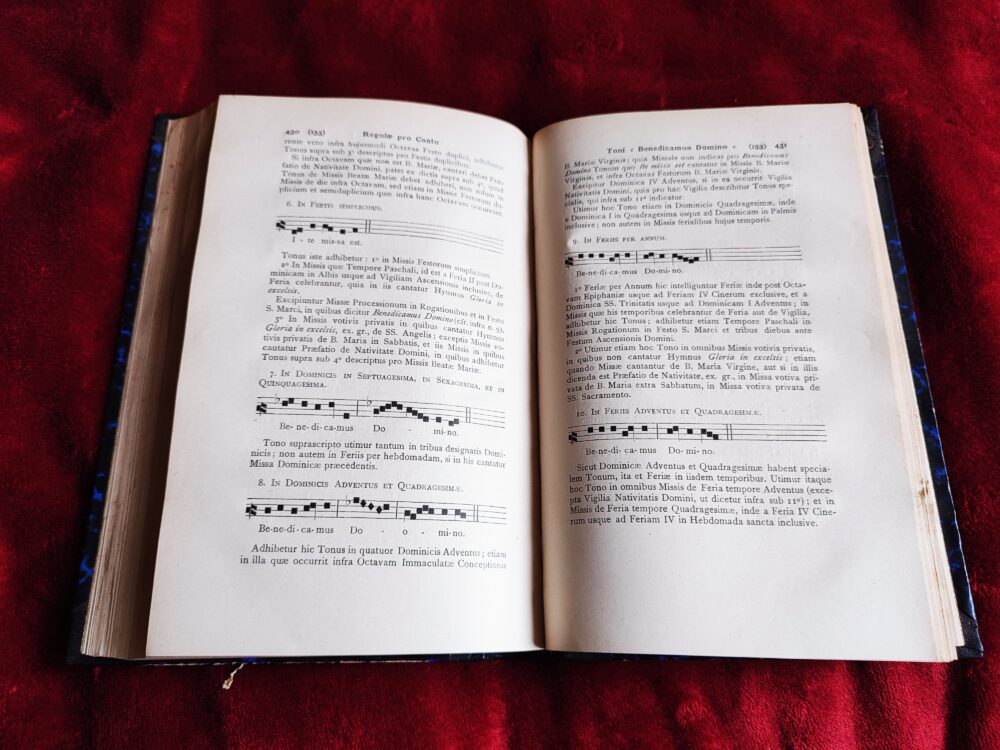 430 (153) Regulæ pro Cantu
rente vero infra hujusmodi Octavas Festo duplici, adhibetur
Tonus supra sub 3º descriptus pro Festis duplicibus.
Si infra Octavam quæ non est B. Mariæ, cantari debet Præ-
fatio de Nativitate Domini, patet ex dictis supra sub 4º, quod
Tonus de Missis Beatæ Mariæ debet adhiberi, non solum in
Missis de die infra Octavam, sed etiam in Missis Festorum du-
plicium et semiduplicium quæ infra hanc Octavam occurrunt.
6. In Festis simplicibus.
I - te mis-sa est.
Tonus iste adhibetur : 1º in Missis Festorum simplicium.
2º In Missis quæ Tempore Paschali, id est a Feria II post Do-
minicam in Albis usque ad Vigiliam Ascensionis inclusive, de
Feria celebrantur, quia in iis cantatur Hymnus Gloria in
excelsis.
Excipiuntur Missæ Processionum in Rogationibus et in Festo
S. Marci, in quibus dicitur Benedicamus Domino (cfr. infra n. 9).
3º In Missis votivis privatis in quibus cantatur Hymnus
Gloria in excelsis, ex. gr., de SS. Angelis; exceptis Missis vo-
tivis privatis de B. Maria in Sabbatis, et iis Missis in quibus
cantatur Præfatio de Nativitate Domini, in quibus adhibetur
Tonus supra sub 4º descriptus pro Missis Beatæ Mariæ.
7. In Dominicis in Septuagesima, in Sexagesima, et in
Quinquagesima.
Be- ne-di- ca-mus Do - mi-no.
Tono suprascripto utimur tantum in tribus designatis Domi-
nicis; non autem in Feriis per hebdomadam, si in his cantatur
Missa Dominicæ præcedentis.
8. In Dominicis Adventus et Quadragesimæ.
Be-ne-di-ca-mus Do - o - mi-no.
Adhibetur hic Tonus in quatuor Dominicis Adventus; etiam
in illa quæ occurrit infra Octavam Immaculatæ Conceptionis
Toni « Benedicamus Domino » (153) 431
B. Mariæ Virginis; quia Missale non indicat pro Benedicamus
Domino Tonum quo Ite missa est cantatur in Missis B. Mariæ
Virginis, et infra Octavas Festorum B. Mariæ Virginis.
Excipitur Dominica IV Adventus, si in ea occurrit Vigilia
Nativitatis Domini, quia pro hac Vigilia describitur Tonus spe-
cialis, qui infra sub 11º indicatur.
Utimur hoc Tono etiam in Dominicis Quadragesimæ, inde
a Dominica I in Quadragesima usque ad Dominicam in Palmis
inclusive; non autem in Missis ferialibus hujus temporis.
9. In Feriis per annum.
Be-ne-di-ca-mus Do-mi-no.
1º Feriæ per Annum hic intelliguntur Feriæ inde post Octa-
vam Epiphaniæ usque ad Feriam IV Cinerum exclusive, et a
Dominica SS. Trinitatis usque ad Dominicam I Adventus; in
Missis quæ his temporibus celebrantur de Feria aut de Vigilia,
adhibetur hic Tonus; adhibetur etiam Tempore Paschali in
Missis Rogationum in Festo S. Marci et tribus diebus ante
Festum Ascensionis Domini.
2º Utimur etiam hoc Tono in omnibus Missis votivis privatis,
in quibus non cantatur Hymnus Gloria in excelsis; etiam
quando Missæ cantantur de B. Maria Virgine, aut si in illis
dicenda est Præfatio de Nativitate, ex. gr., in Missa votiva pri-
vata de B. Maria extra Sabbatum, in Missa votiva privata de
SS. Sacramento.
10. In Feriis Adventus et Quadragesimæ.
Be-ne-di-camus Do-mi-no.
Sicut Dominicæ Adventus et Quadragesimæ habent specia-
lem Tonum, ita et Feriæ in iisdem temporibus. Utimur itaque
hoc Tono in omnibus Missis de Feria tempore Adventus (exce-
pta Vigilia Nativitatis Domini, ut dicetur infra sub 11º); et in
Missis de Feria tempore Quadragesimæ, inde a Feria IV Cine-
rum usque ad Feriam IV in Hebdomada sancta inclusive.